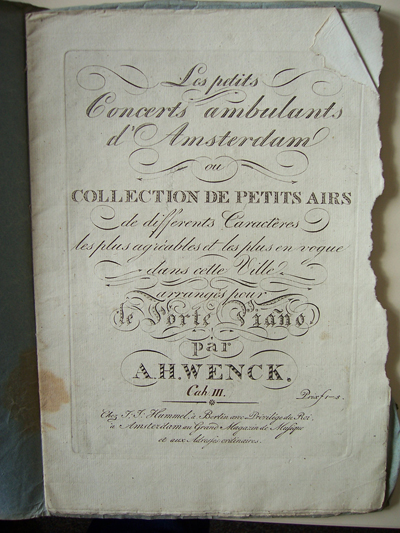 Les petits
Concerts ambulants
d'Amsterdam
ou
COLLECTION DE PETITS AIRS
de différents Caractères
les plus agréables et les plus en vogue
dans cette Ville
arrangés pour
le Forte Piano
par
A.H. WENCK.
Cah. III. Prix f
Chez J. J. Hummel, à Berlin avec Privilège du Roi,
à Amsterdam au Grand Magazin de Musique
et aux Adresses ordinaires.